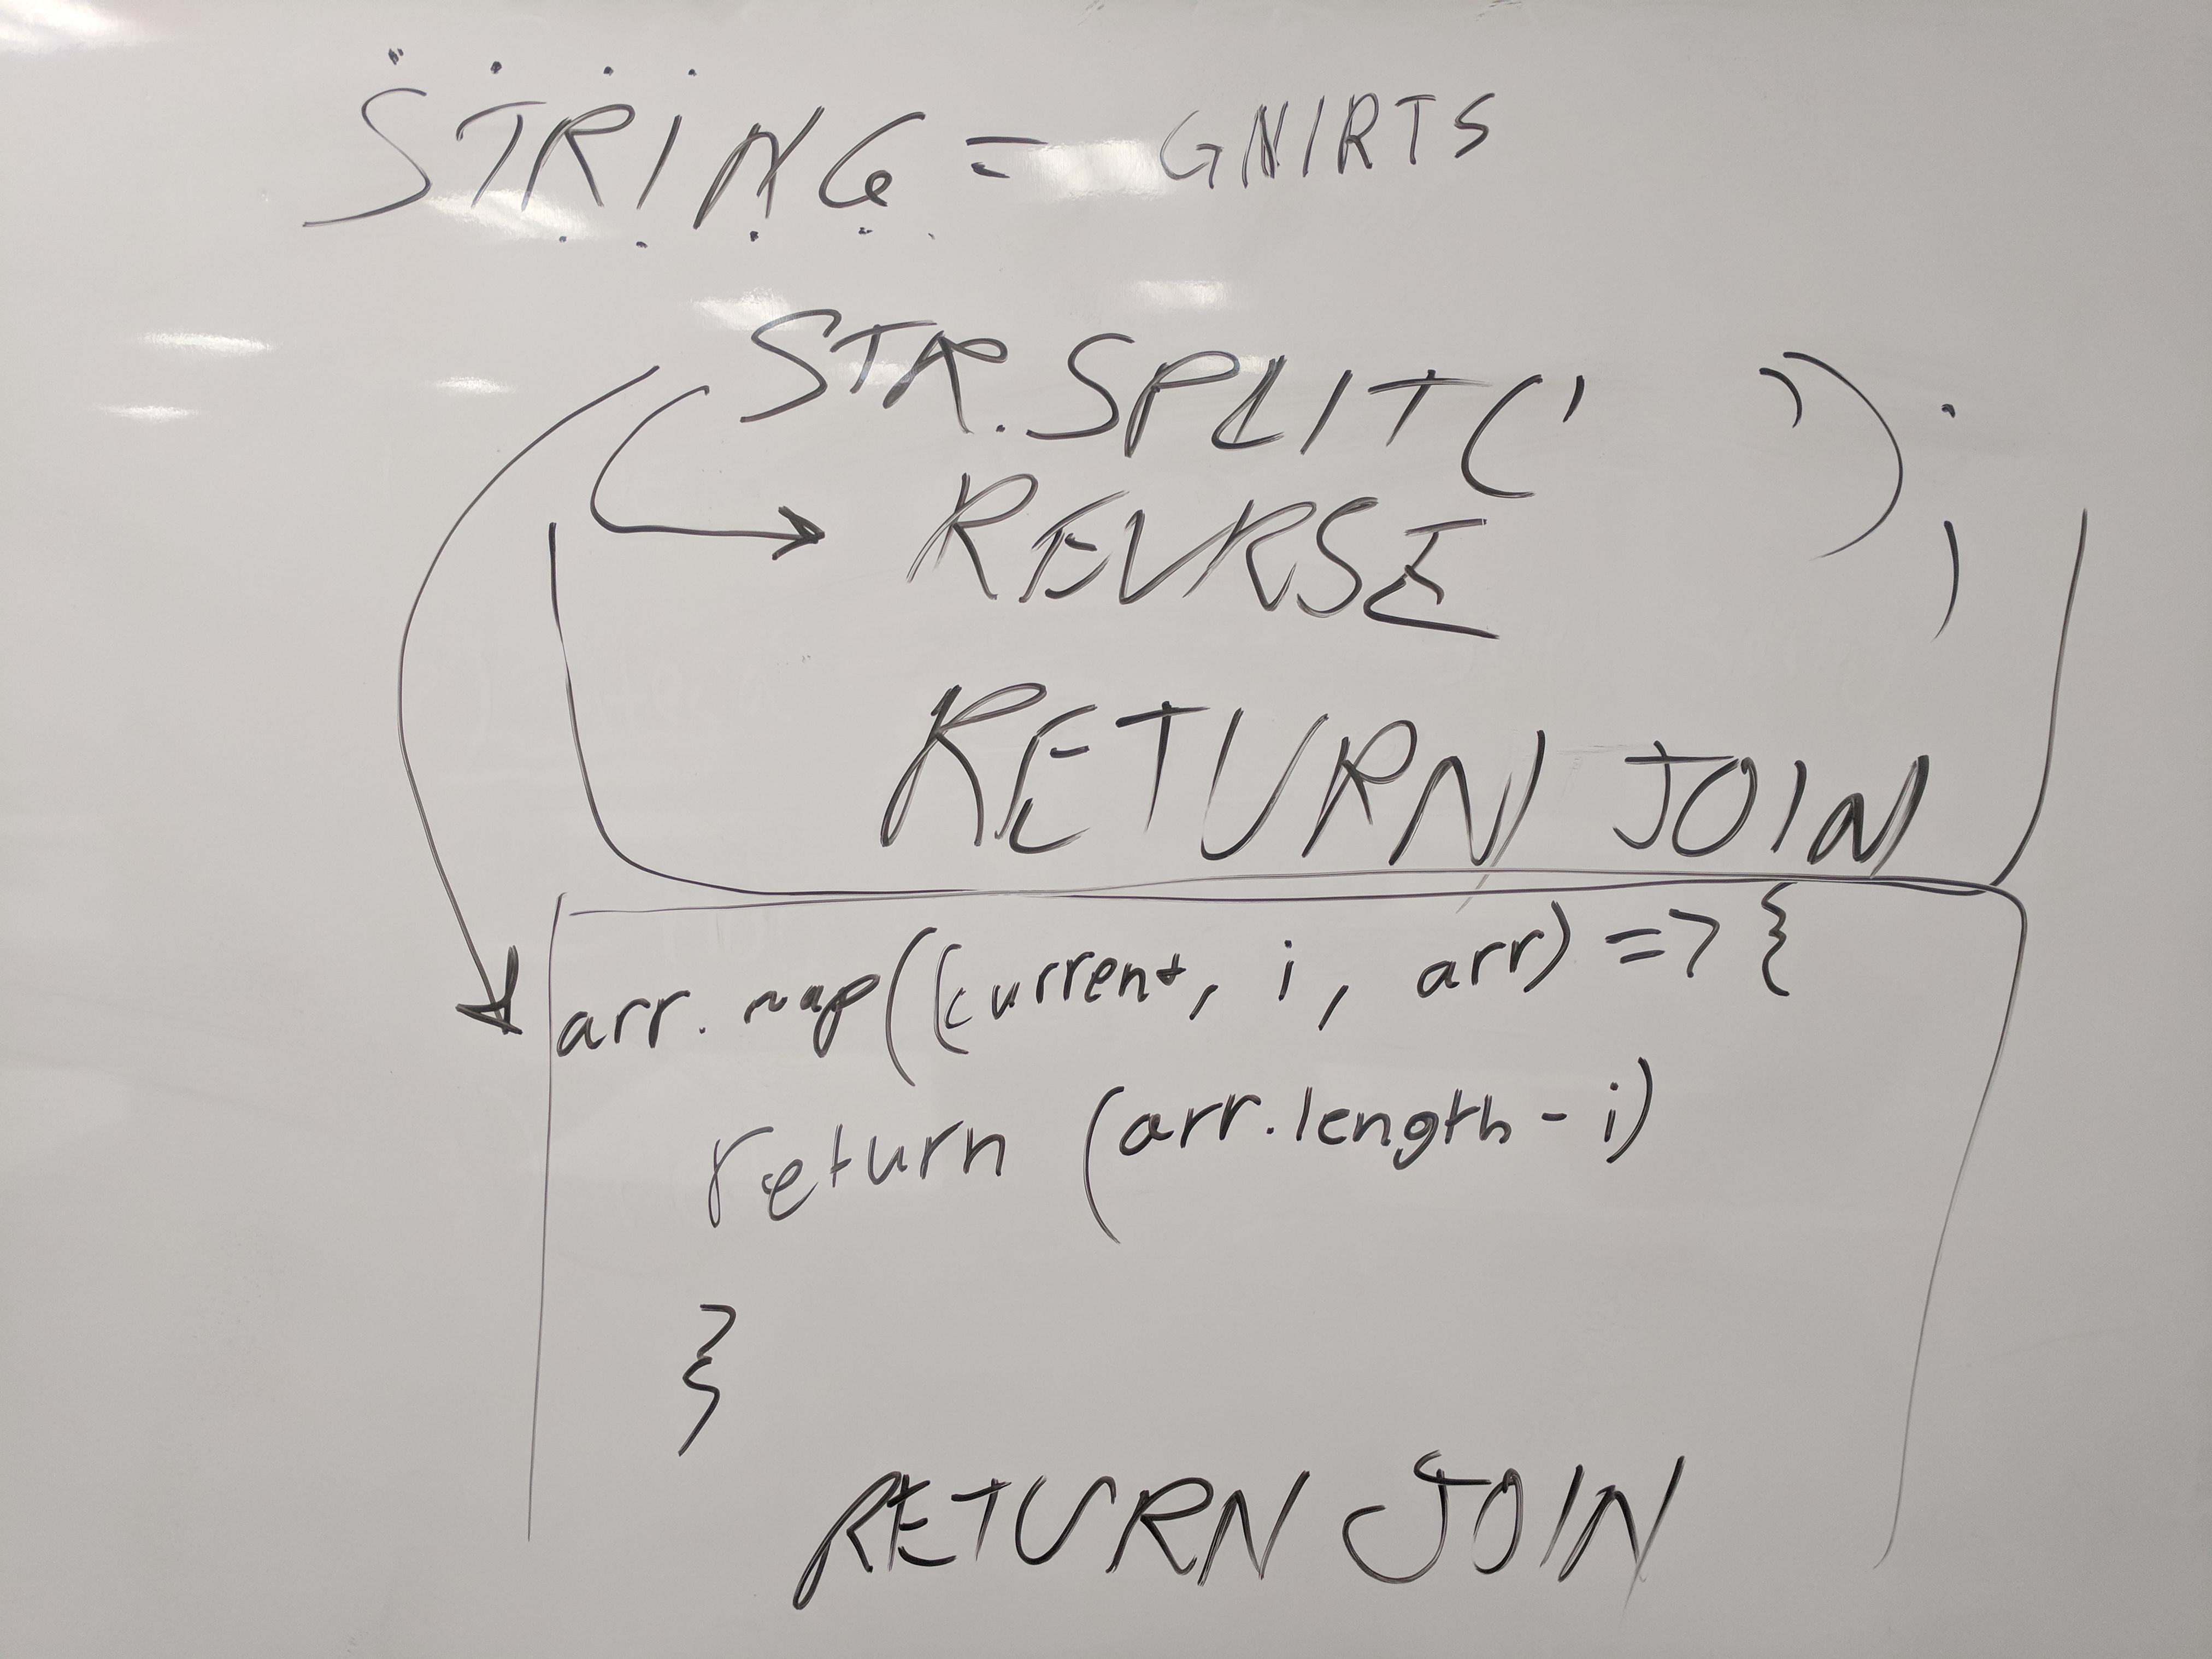 STRING = GNIRTS
STR.SPLIT(' ');
REVRSE
RETURN JOIN
arr.map((current, i, arr) => {
return (arr.length - i)
}
RETURN JOIN